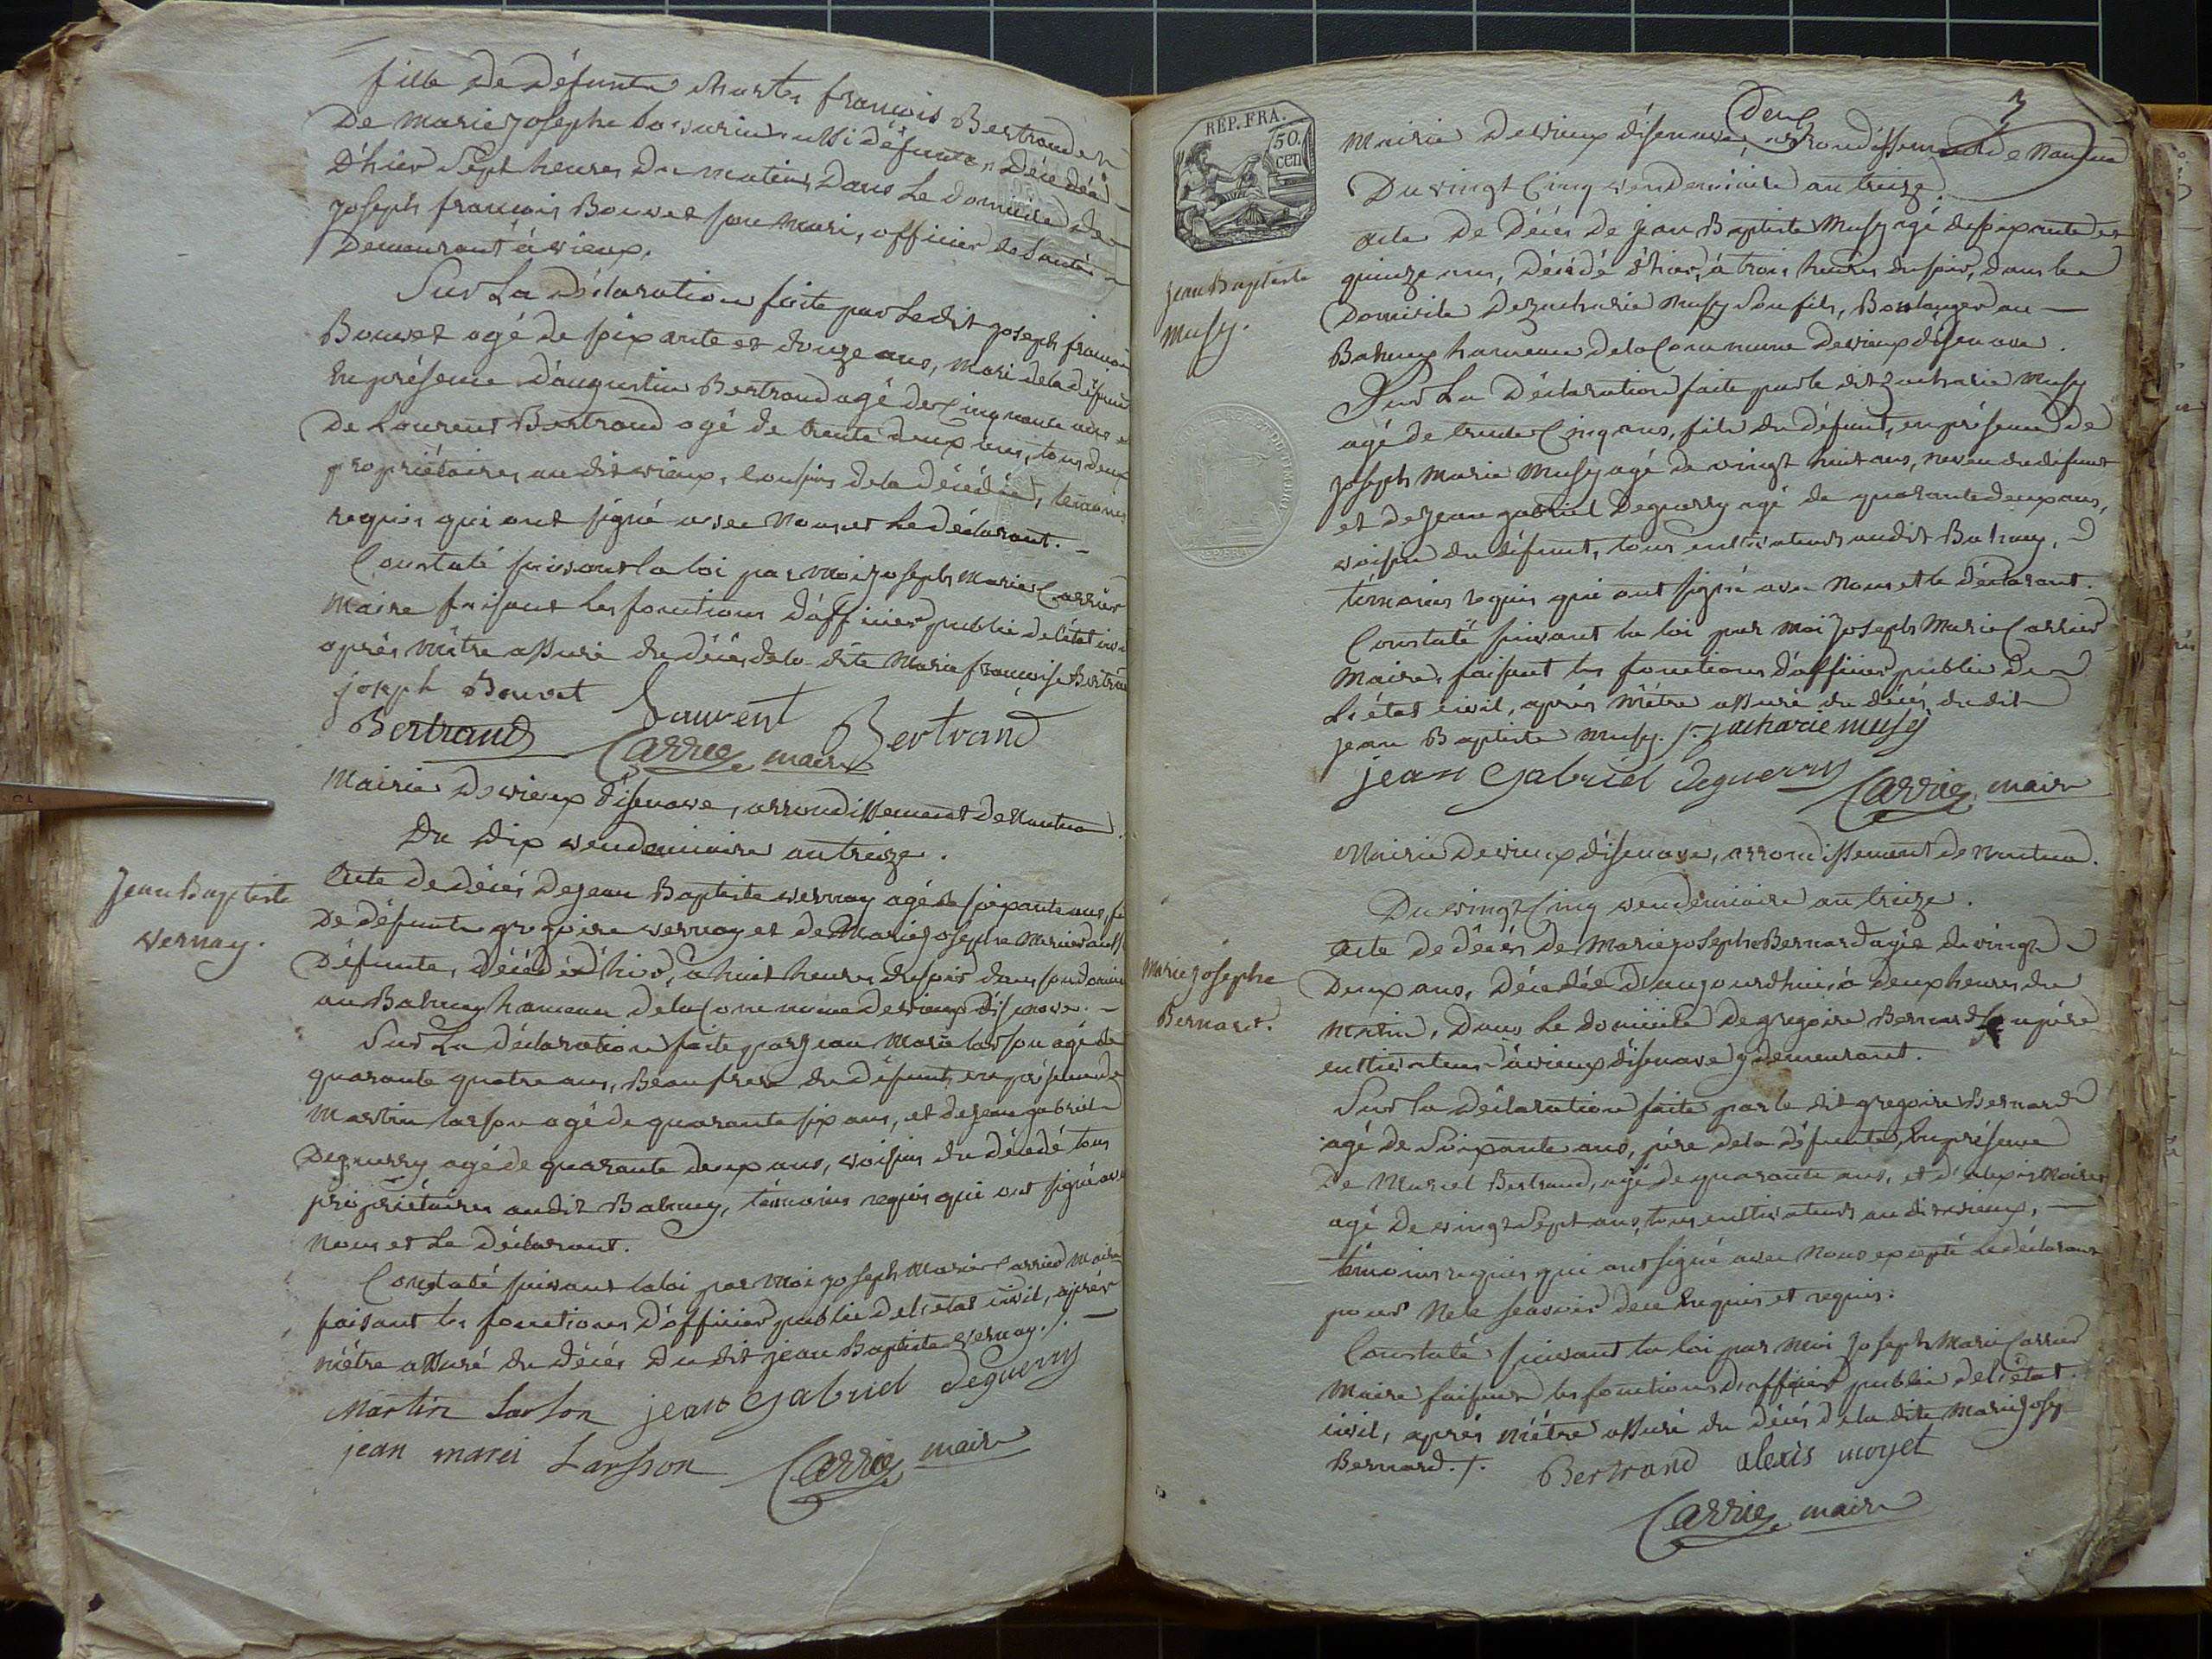 fille de défunts Charles françois Bertrand et
De marie josephe aussi défunte, Décédée
D'hier Sept heures du matin, Dans Le domicile de
joseph françois Bouvet son mari, officier de Santé
Demeurant à vieux.
Sur La déclaration faite par Ledit joseph françois
Bouvet agé de soixante et douze ans, mari de la défunte
En présence d'augustin Bertrand agé de Cinquante ans et
De Laurent Bertrand agé de trente deux ans, tous deux
propriétaires audit vieux, Cousins de la décédée, témoins
requis qui ont signé avec Nous et Le déclarant. -
Constaté suivant la loi par moi joseph Marie Carrier
Maire faisant Les fonctions d'officier public de l'état civil
après m'être assuré du décès de la dite Marie françoise Bertrand
joseph Bouvet
Bertrand Laurent Bertrand
Carrier, maire
Mairie de vieux d'isenave, arrondissement de Nantua.
Du dix vendemiaire an treize.
Jean Baptiste
Vernay.
Acte de décès de jean Baptiste vernay agé de soixante ans, fils
De défunts gregoire vernay et de Marie josephe aussi
Défunte, décédé d'hier, à huit heures du soir dans son domicile
au Balmay hameau de la Commune de vieux d'isenave. -
Sur La déclaration faite par jean Marie larson agé de
quarante quatre ans, Beaufrere du défunt, en présence de
Martin larson agé de quarante six ans, et de jean gabriel
Deguerry agé de quarante deux ans, voisins du décédé tous
propriétaires audit Balmay, témoins requis qui ont signé avec
Nous et Le déclarant.
Constaté suivant la loi par moi joseph Marie Carrier Maire
faisant les fonctions d'officier public de l'état civil, après
m'être assuré du décès du dit jean Baptiste vernay ./. -
Martin Larson jean gabriel deguerry
jean marei Larsson Carrier, maire
REP. FRA.
50.
cen
Deux
Mairie de vieux d'isenave, arrondissement de Nantua
Du vingt Cinq vendemiaire an treize.
Jean Baptiste
Musy.
Acte de Décès de jean Baptiste Musy agé de soixante et
quinze ans, Décédé d'hier, à trois heures du soir, dans le
Domicile de zacharie Musy son fils, Boulanger au -
Balmay hameau de la Commune de vieux d'isenave.
Sur La Déclaration faite par le dit zacharie Musy
agé de trente Cinq ans, fils du défunt, en présence de
joseph Marie Musy agé de vingt huit ans, neveu du défunt
et de jean gabriel Deguerry agé de quarante deux ans,
voisin du défunt, tous cultivateurs audit Balmay,
témoins requis qui ont signé avec Nous et le déclarant.
Constaté suivant la loi par moi joseph Marie Carrier
Maire, faisant les fonctions d'officier public de
L'état civil, après m'être assuré du décès du dit
jean Baptiste Musy. /. zacharie musy
jean gabriel deguerry Carrier, maire
Mairie de vieux d'isenave, arrondissement de Nantua.
Du vingt Cinq vendemiaire an treize.
Marie josephe
Bernard.
Acte de décès de Marie josephe Bernard agée de vingt
Deux ans, Décédée d'aujourdhui, à deux heures du
Matin, Dans Le domicile de gregoire Bernard son père
cultivateur à vieux d'isenave y demeurant.
Sur la déclaration faite par le dit gregoire Bernard
agé de Soixante ans, père de la défunte, En présence
De Marcel Bertrand, agé de quarante ans, et d'alexis
agé de vingt Sept ans, tous cultivateurs au dit vieux, -
témoins requis qui ont signé avec Nous excepté Le déclarant
pour Ne le scavoir de ce Enquis et requis.
Constaté suivant la loi par moi joseph Marie Carrier
Maire faisant les fonctions d'officier public de l'état
civil, après m'être assuré du décès de la dite Marie josep
Bernard. /. Bertrand alexis moyet
Carrier, maire